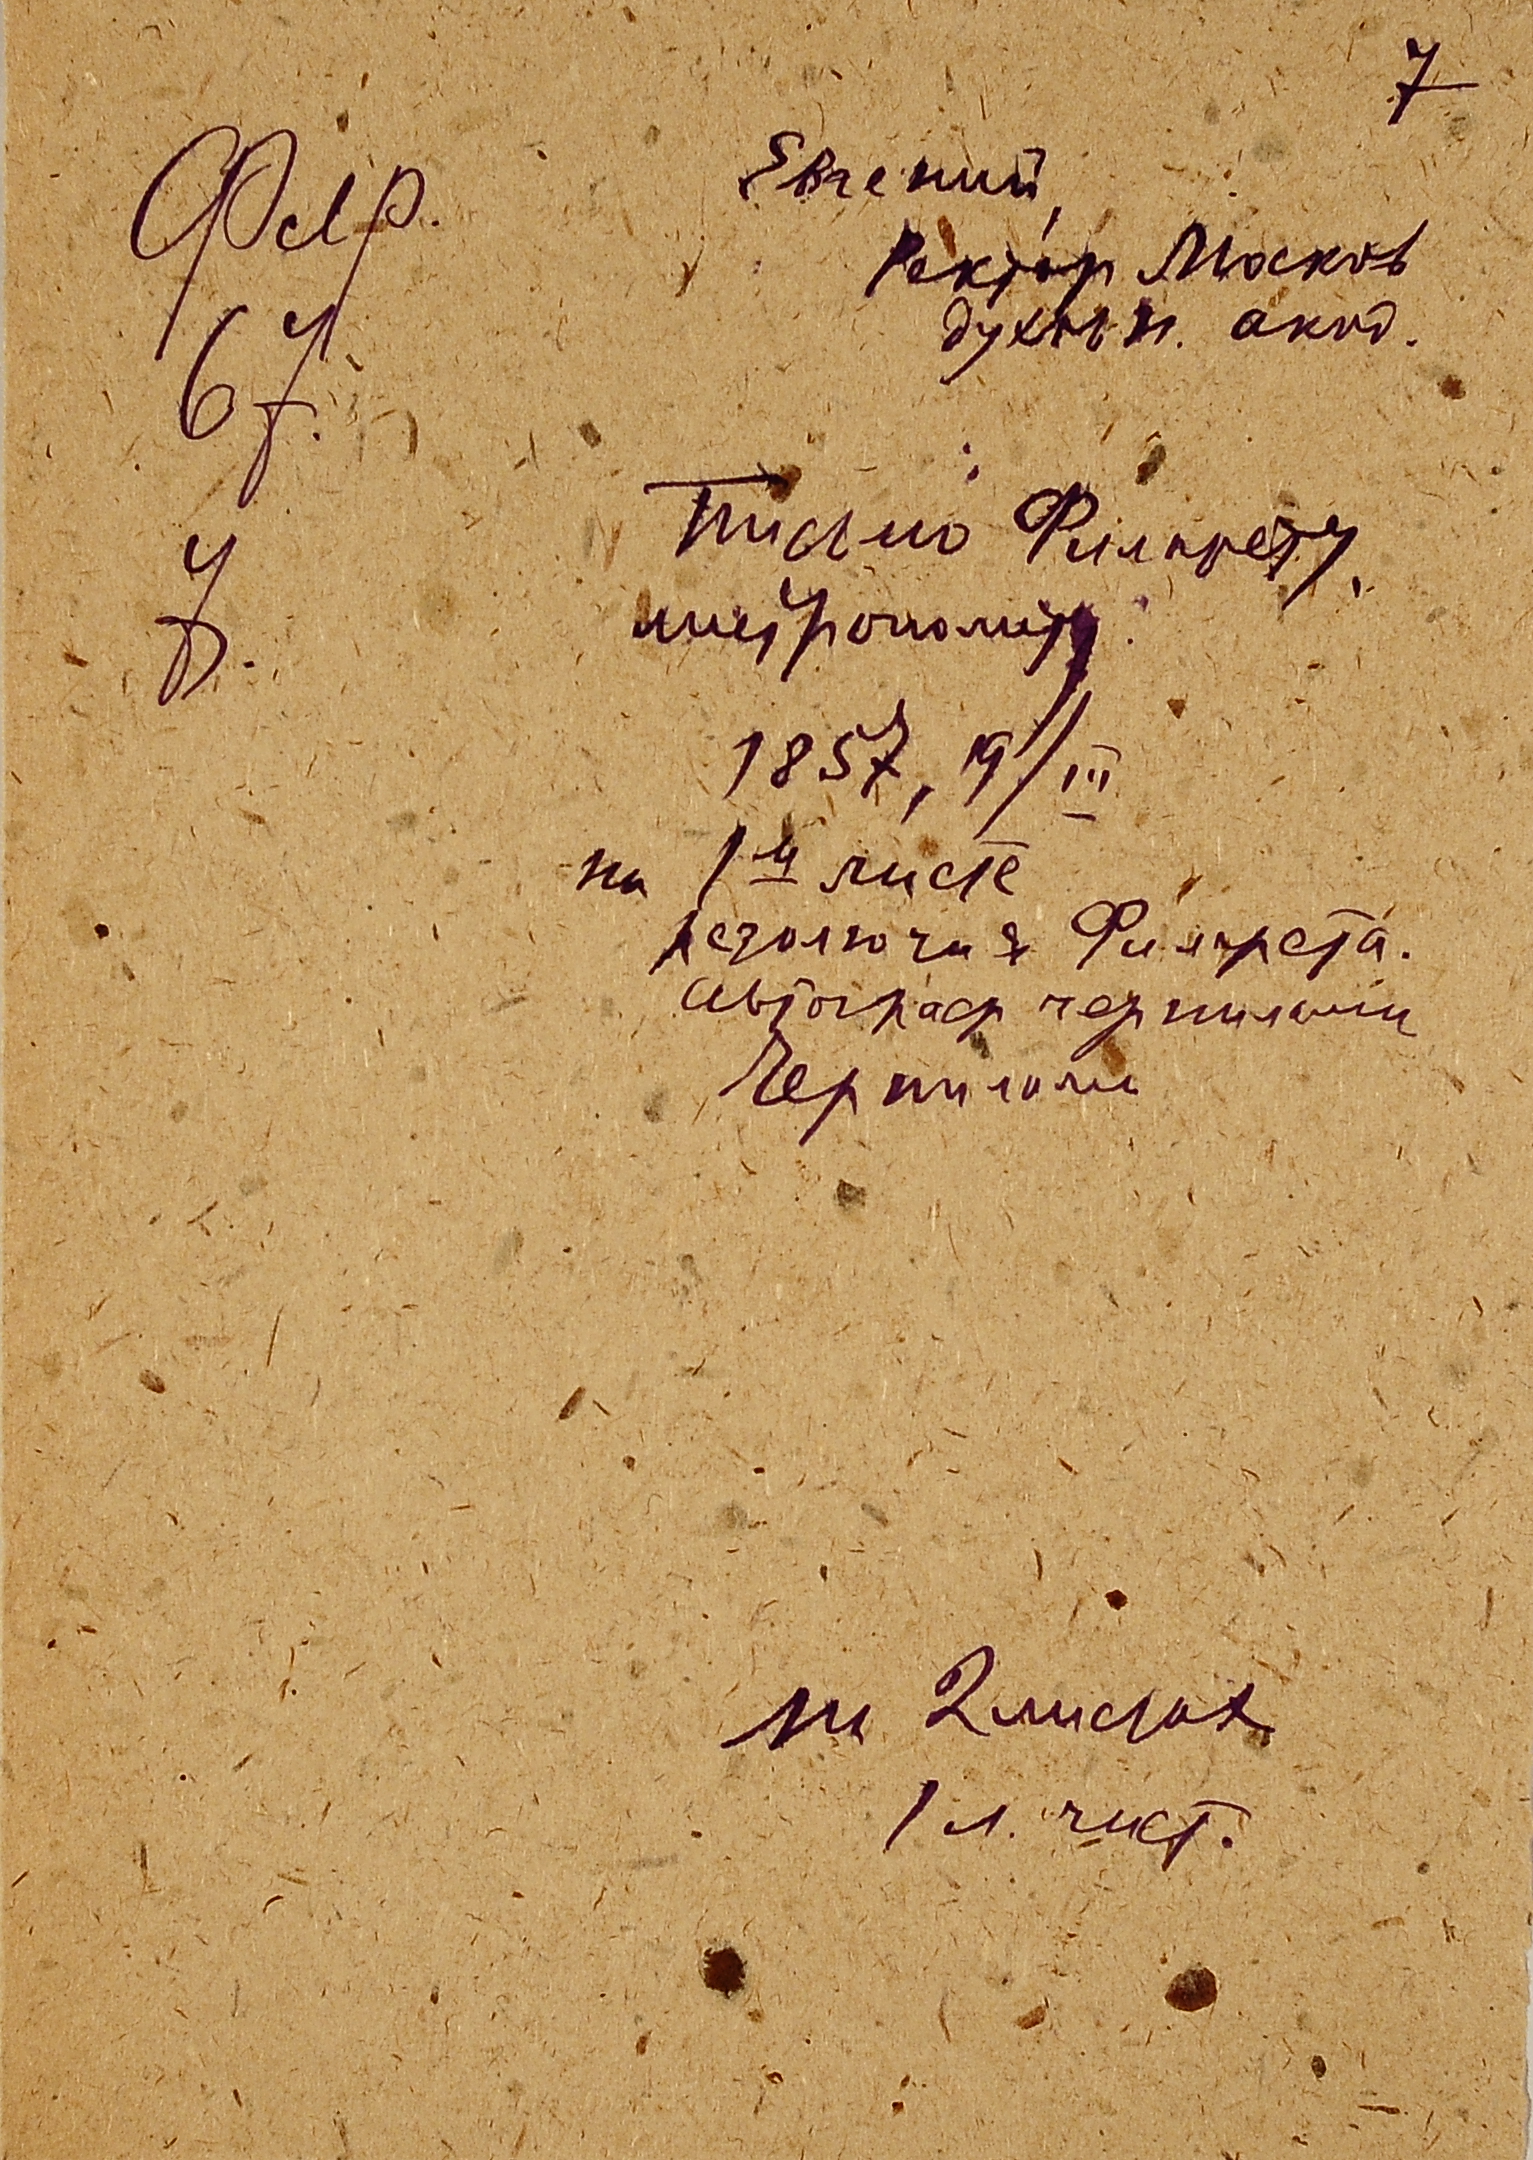 7
Фил.
67.
7.
Евгений,
Ректор Москов
духовн. акад.
Письмо Филарету,
митрополиту.
1857, 19/III
на 1м листе
резолюция Филарета.
автограф чернилами
Чернилами
на 2 листах
1 л. чист.